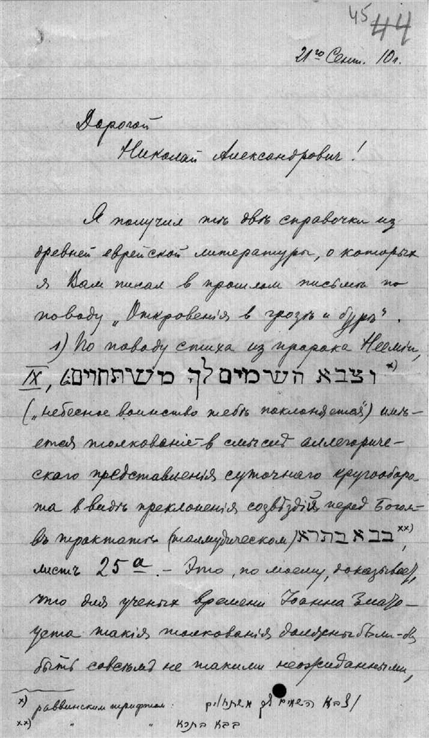 45 44
21го Сент. 10 г.
Дорогой
Николай Александрович!
Я получил тѣ двѣ справочки из
древней еврейской литературы, о которых
я Вам писал в прошлом письмѣ по
поводу „Откровенія в грозѣ и бурѣ“.
1) По поводу стиха из пророка Нееміи,
IX, 6 וצבא השמים לך משתחוים x)
(„небесное воинство тебѣ поклоняется“) имѣ-
ется толкованіе в смыслѣ аллегориче-
скаго представленія суточнаго кругооборо-
та в видѣ преклоненія созвѣздій перед Богом
в трактатѣ (талмудическом) בבא בתרא xx),
листъ 25 а. — Это, по моему, доказывает,
что для ученых времени Іоанна Злато-
уста такія толкованія должны были-бы
быть совсѣмъ не такими неожиданными,
x) раввинским шрифтом: וצבא השמים לך משתחוים
xx) " " בבא בתרא